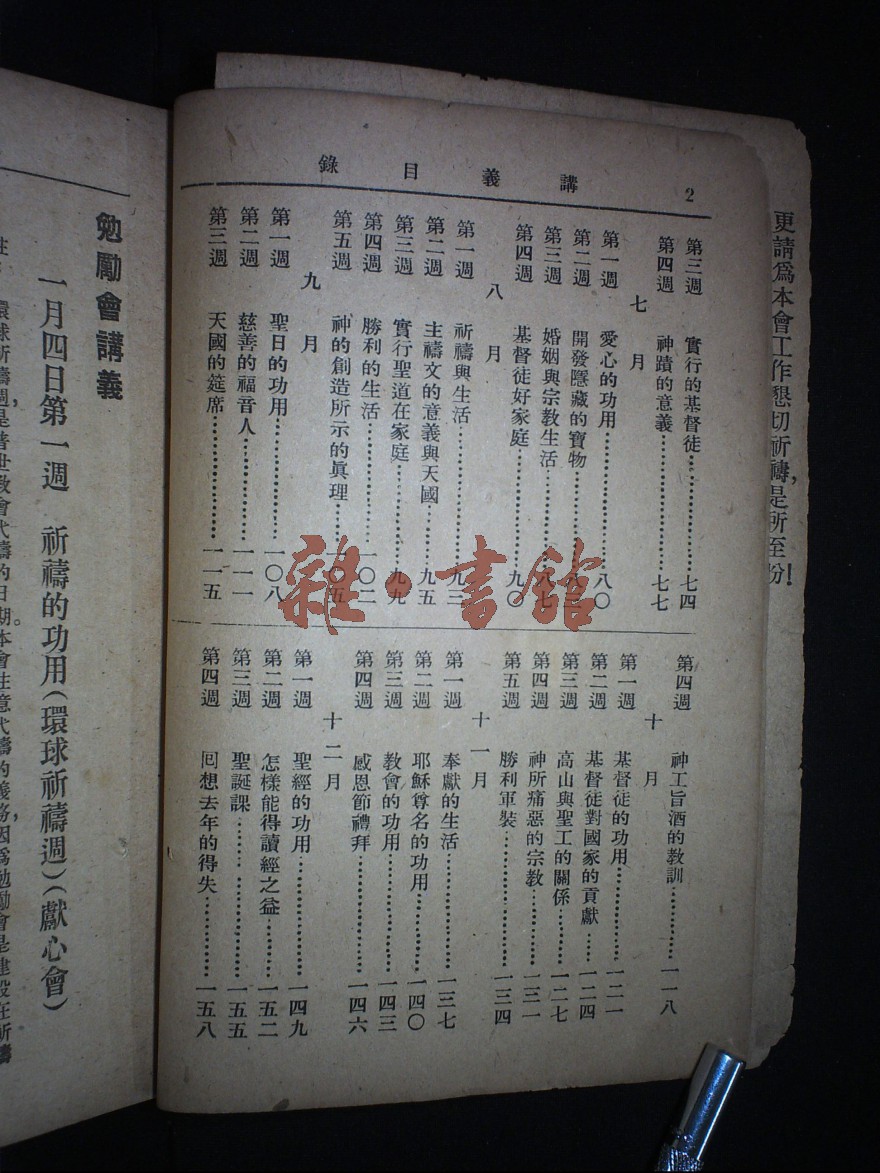 講義目錄 2
第三週 實行的基督徒…………七四
第四週 神蹟的意義…………七七
七月
第一週 愛心的功用…………八〇
第二週 開發隱藏的寶物…………八三
第三週 婚姻與宗教生活…………八七
第四週 基督徒好家庭…………九〇
八月
第一週 祈禱與生活…………九三
第二週 主禱文的意義與天國…………九五
第三週 實行聖道在家庭…………九九
第四週 勝利的生活…………一〇二
第五週 神的創造所示的眞理…………一〇五
九月
第一週 聖日的功用…………一〇八
第二週 慈善的福音人…………一一一
第三週 天國的筵席…………一一五
第四週 神工旨酒的教訓…………一一八
十月
第一週 基督徒的功用…………一二一
第二週 基督徒對國家的貢獻…………一二四
第三週 高山與聖工的關係…………一二七
第四週 神所痛惡的宗教…………一三一
第五週 勝利軍裝…………一三四
十一月
第一週 奉獻的生活…………一三七
第二週 耶穌尊名的功用…………一四〇
第三週 教會的功用…………一四三
第四週 感恩節禮拜…………一四六
十二月
第一週 聖經的功用…………一四九
第二週 怎樣能得讀經之益…………一五二
第三週 聖誕課…………一五五
第四週 回想去年的得失…………一五八
更請爲本會工作懇切祈禱,是所至盼!
勉勵會講義
一月四日第一週 祈禱的功用(環球祈禱週)(獻心會)
環球祈禱週,是普世敎會代禱的日期。本會注意代禱的義務,因爲勉勵會是建設在祈禱
雜·書館